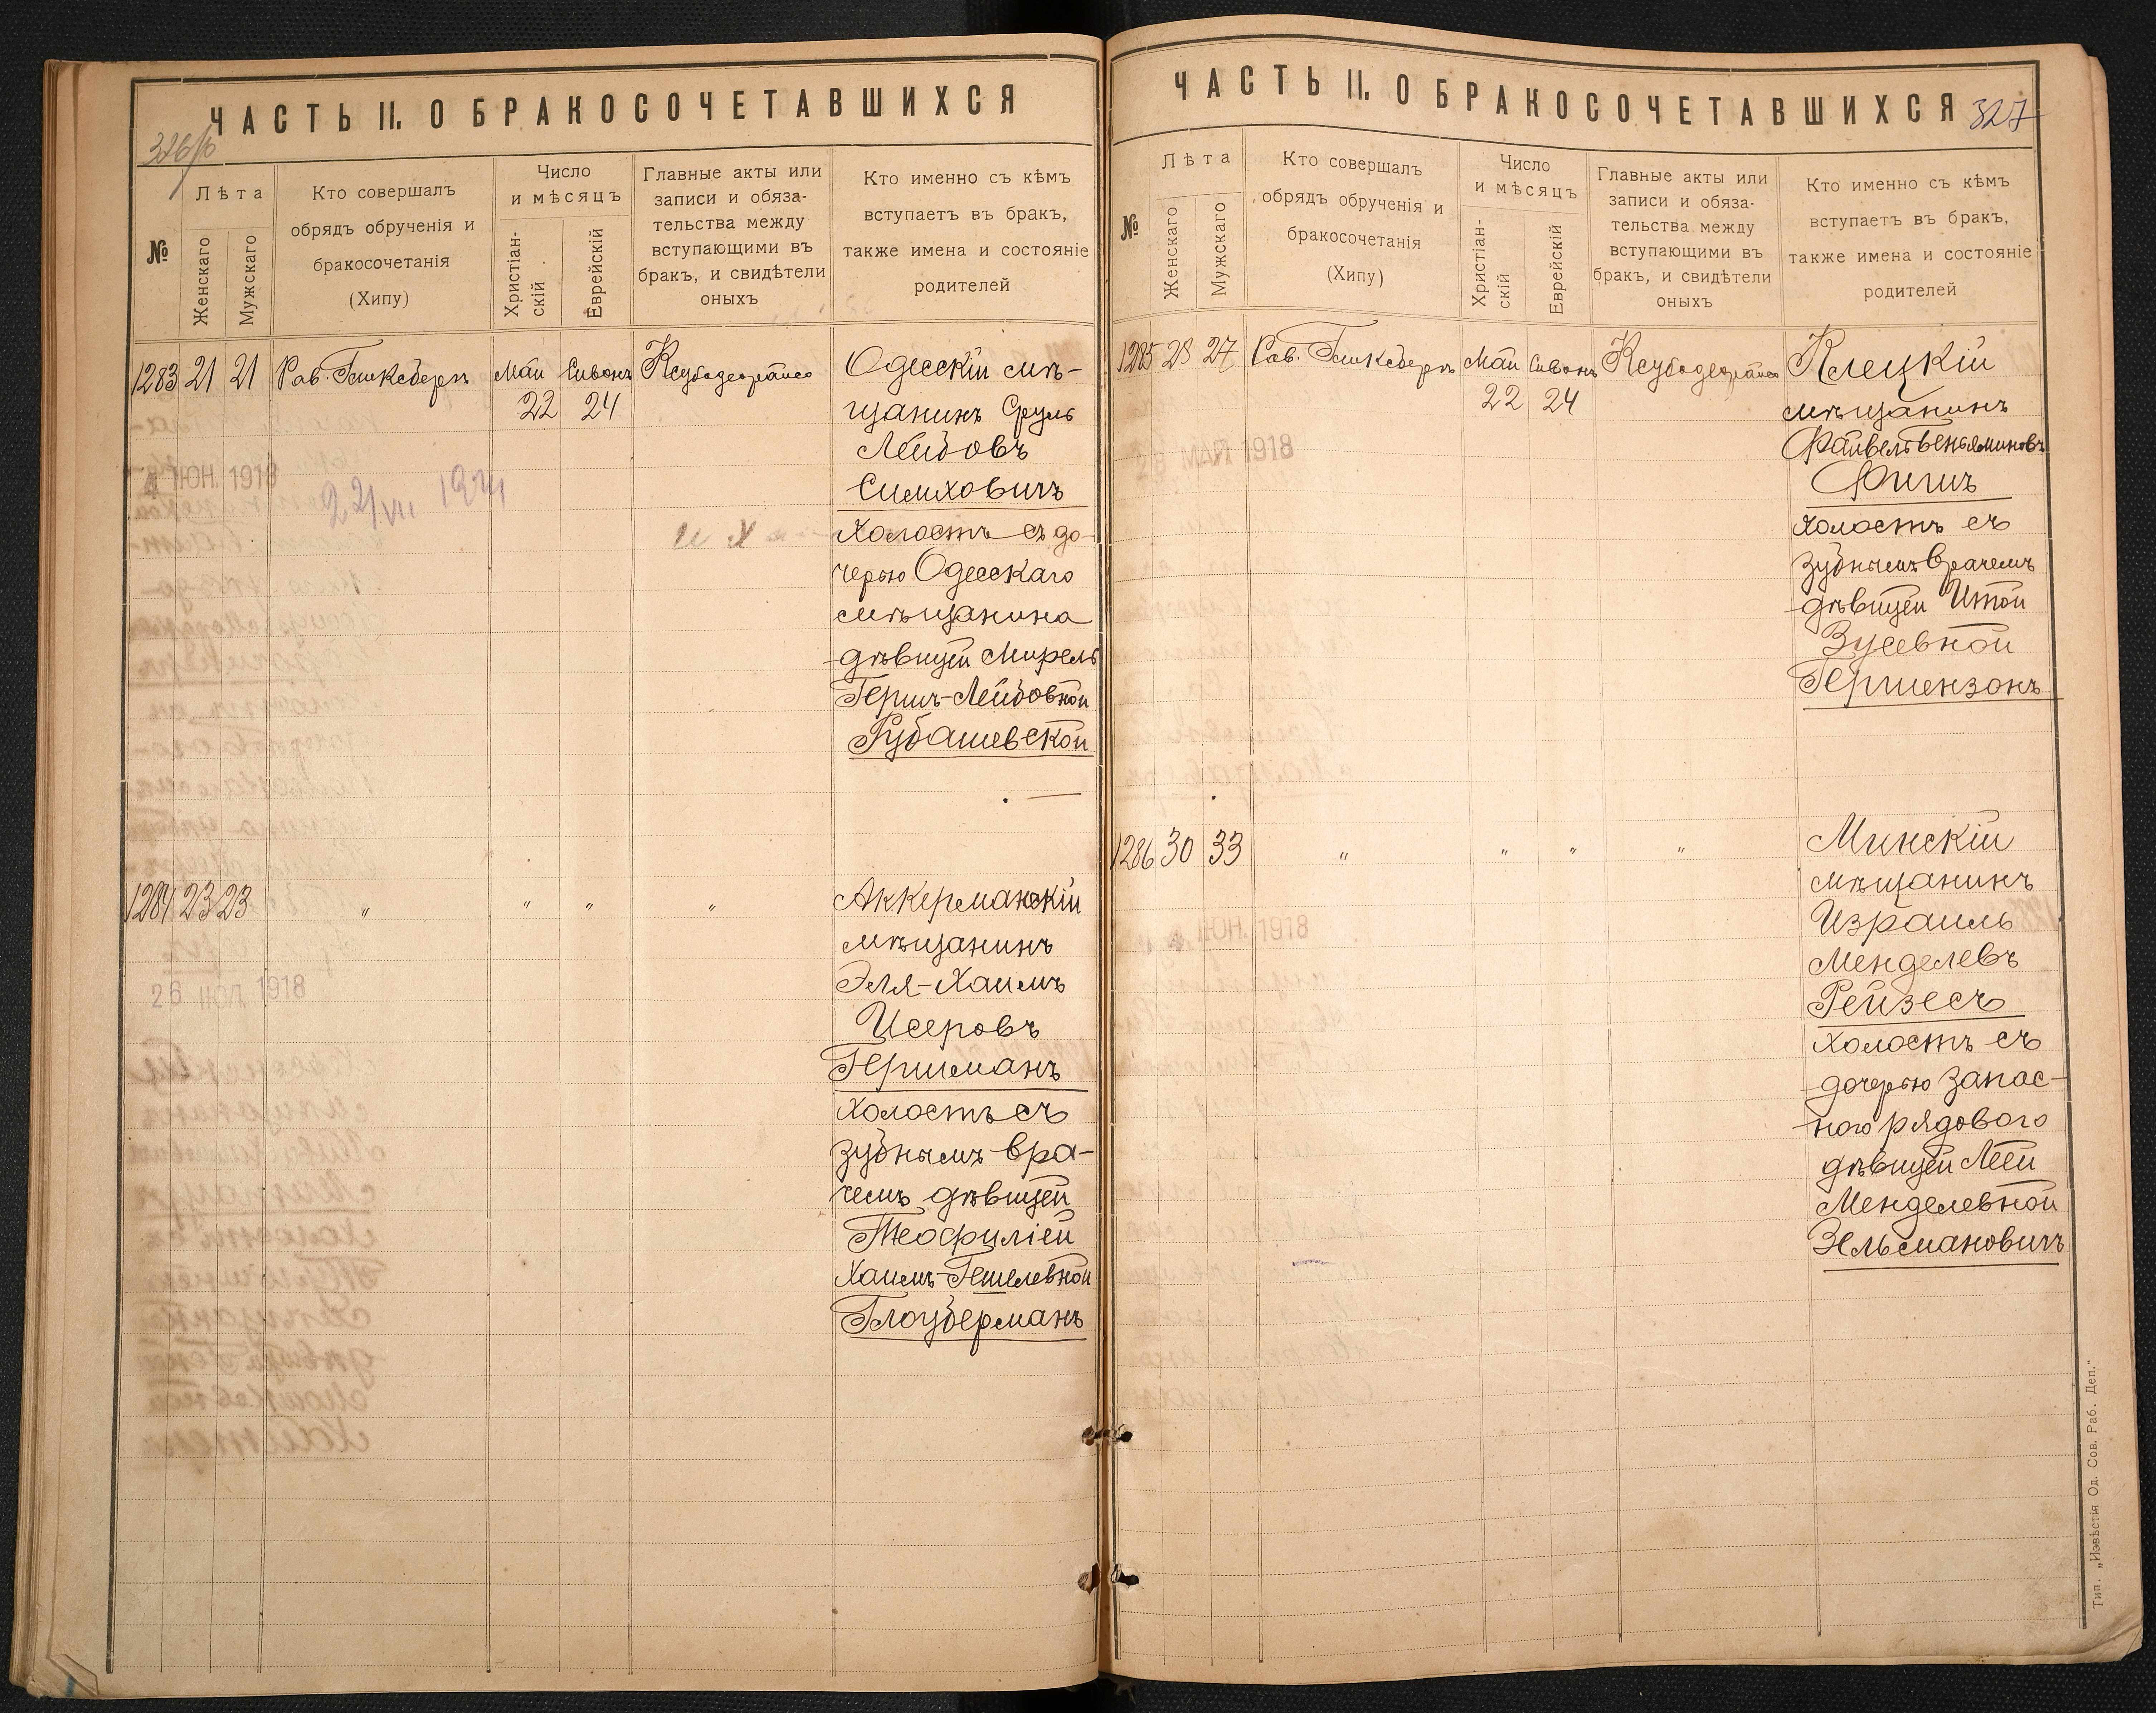 ЧАСТЬ II. О БРАКОСОЧЕТАВШИХСЯ
326/б
№
Лѣта
Женскаго
Мужскаго
Кто совершалъ
обрядъ обрученія и
бракосочетанія
(Хипу)
Число
и мѣсяцъ
Христіан-
скій
Еврейскій
Главные акты или
записи и обяза-
тельства между
вступающими въ
бракъ, и свидѣтели
оныхъ
Кто именно съ кѣмъ
вступаетъ въ бракъ,
также имена и состояніе
родителей
1283 21 21 Рав. Май Сивонъ
22 24
Одесскій мѣ-
щанинъ Сруль
Лейбовъ
Симховичъ
холостъ съ до-
черью Одесскаго
мѣщанина
дѣвицей Мирель
Гершъ-Лейбовной
Рубашевской
4 ІЮН. 1918
22/VII
1284 23 23 " " " "
Аккерманскій
мѣщанинъ
Эля-Хаимъ
Исеровъ
Гершманъ
холостъ съ
зубнымъ вра-
чемъ дѣвицей
Теофиліей
Хаимъ-Гешелевной
Глоуберманъ
26 ІЮЛ 1918
ЧАСТЬ II. О БРАКОСОЧЕТАВШИХСЯ
327
№
Лѣта
Женскаго
Мужскаго
Кто совершалъ
обрядъ обрученія и
бракосочетанія
(Хипу)
Число
и мѣсяцъ
Христіан-
скій
Еврейскій
Главные акты или
записи и обяза-
тельства между
вступающими въ
бракъ, и свидѣтели
оныхъ
Кто именно съ кѣмъ
вступаетъ въ бракъ,
также имена и состояніе
родителей
1285 28 27 Рав. Май Сивонъ
22 24
Клецкій
мѣщанинъ
Файвель Веньяминовъ
Фишъ
холостъ съ
зубнымъ врачемъ
дѣвицей Итой
Зусевной
Гершензонъ
МАЯ 1918
1286 30 33 " " " "
Минскій
мѣщанинъ
Израиль
Менделевъ
Рейзесъ
холостъ съ
дочерью запас-
ного рядового
дѣвицей Леей
Менделевной
Зельмановичъ
4 ІЮН. 1918
Тип. „Извѣстія Од. Сов. Раб. Деп."